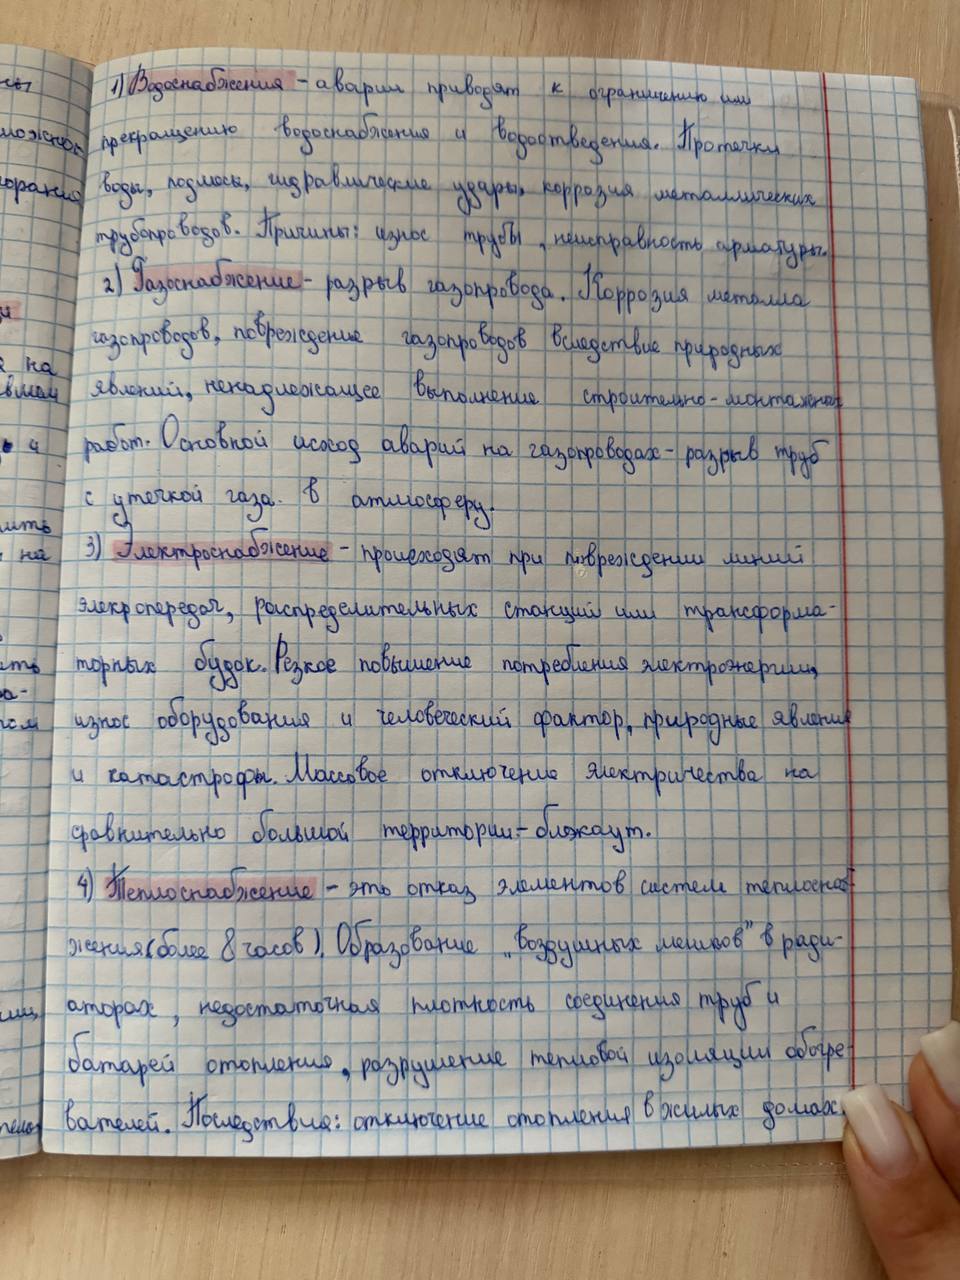 1) Водоснабжения - аварии приводят к ограничению или
прекращению водоснабжения и водоотведения. Протечки
воды, подмосы, гидравлические удары, коррозия металлических
трубопроводов. Причины: износ трубы, неисправность арматуры.
2) Газоснабжение - разрыв газопровода. Коррозия металла
газопроводов, повреждение газопроводов вследствие природных
явлений, ненадлежащее выполнение строительно-монтажных
работ. Основной исход аварий на газопроводах - разрыв труб
с утечкой газа в атмосферу.
3) Электроснабжение - происходят при повреждении линий
элекропередач, распределительных станций или трансформа-
торных будок. Резкое повышение потребления электроэнергии,
износ оборудования и человеческий фактор, природные явления
и катастрофы. Массовое отключение электричества на
сравнительно большой территории - блэкаут.
4) Теплоснабжение - это отказ элементов систем теплоснаб-
жения (более 8 часов). Образование "воздушных мешков" в ради-
аторах, недостаточная плотность соединения труб и
батарей отопления, разрушение тепловой изоляции обогре-
вателей. Последствия: отключение отопления в жилых домах.